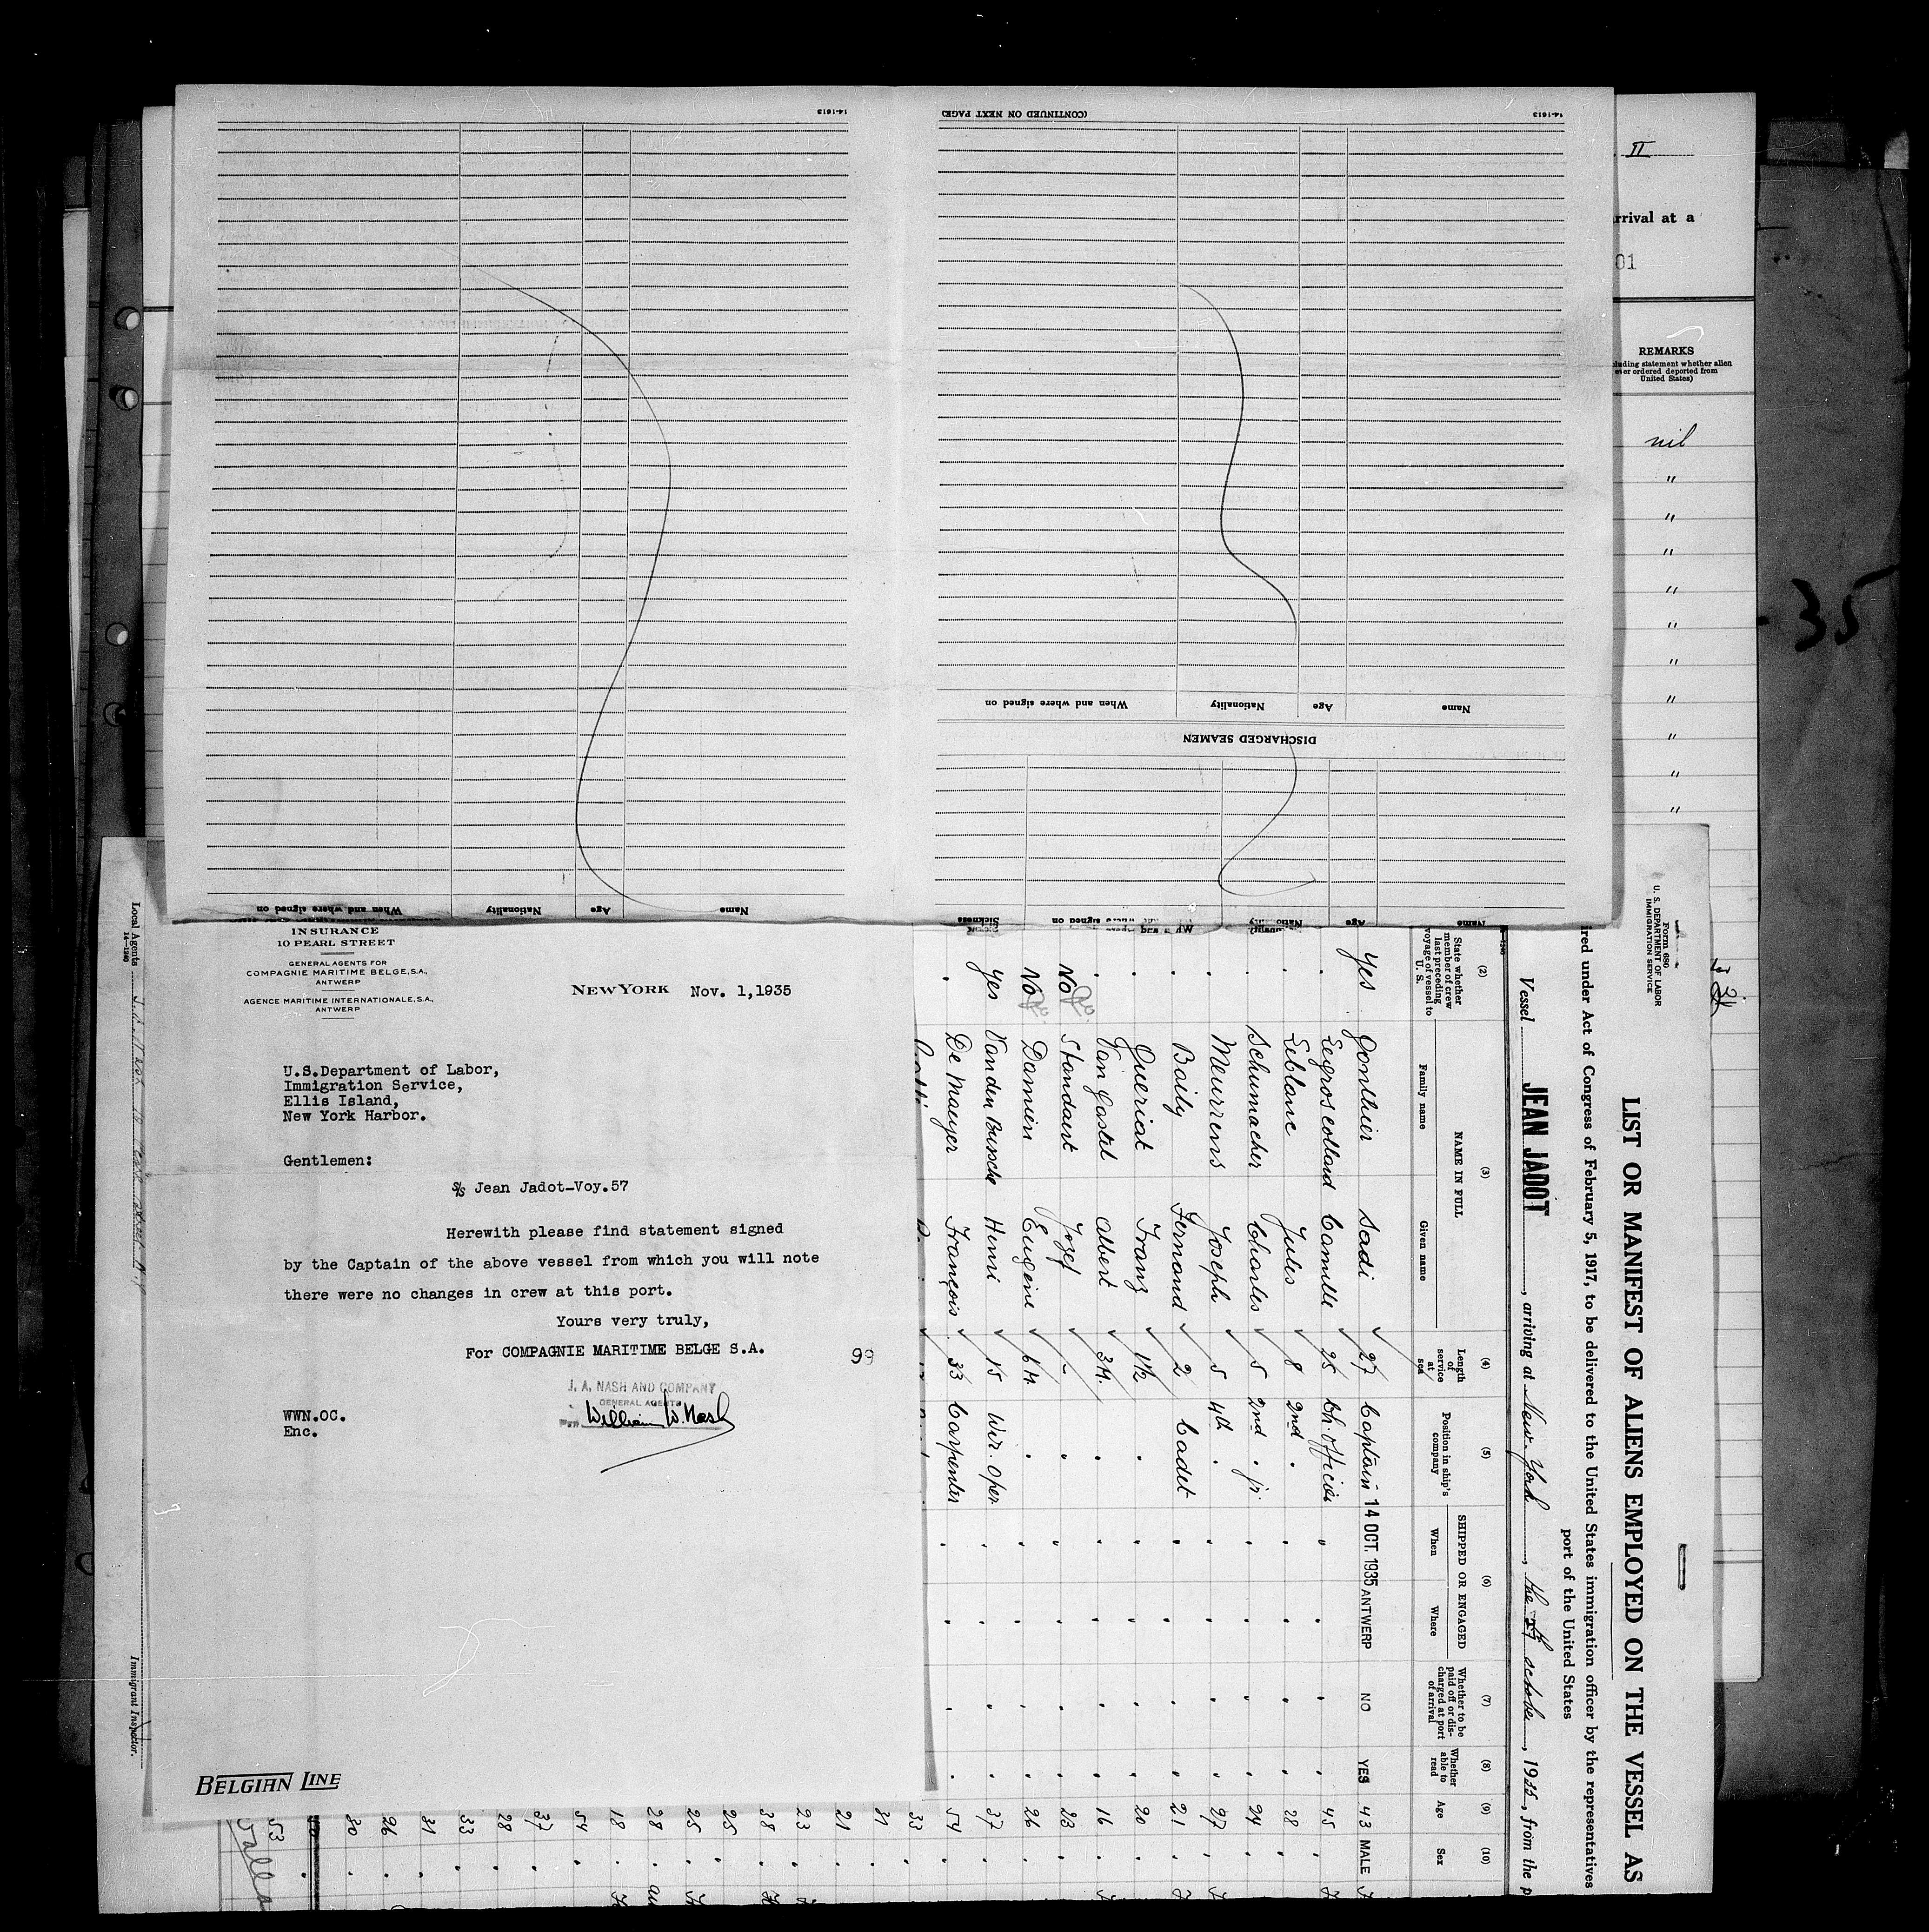 14-1613
(CONTINUED ON NEXT PAGE)
14-1613
When and where signed on
Nationality
Age
Name
DISCHARGED SEAMEN
When and where signed on
Nationality
Age
Name
Sickness
Nationality
Age
Name
II
rrival at a
01
REMARKS
ever ordered deported from
United States)
nil
"
"
"
"
"
"
"
"
"
"
35
INSURANCE
10 PEARL STREET
GENERAL AGENTS FOR
COMPAGNIE MARITIME BELGE, S.A.,
ANTWERP
AGENCE MARITIME INTERNATIONALE, S.A.,
ANTWERP
NEW YORK Nov. 1,1935
U.S.Department of Labor,
Immigration Service,
Ellis Island,
New York Harbor.
Gentlemen:
S/S Jean Jadot-Voy.57
Herewith please find statement signed
by the Captain of the above vessel from which you will note
there were no changes in crew at this port.
Yours very truly,
For COMPAGNIE MARITIME BELGE S.A.
99
J. A. NASH AND COMPANY
GENERAL AGENTS
William W. Nash
WWN.OC.
Enc.
BELGIAN LINE
Local Agents
14-1240
Immigrant Inspector.
Form 680
U. S. DEPARTMENT OF LABOR
IMMIGRATION SERVICE
LIST OR MANIFEST OF ALIENS EMPLOYED ON THE VESSEL AS
ired under Act of Congress of February 5, 1917, to be delivered to the United States immigration officer by the representatives
port of the United States
Vessel JEAN JADOT, arriving at New York, the October, 19, from the p
(2) (3) (4) (5) (6) (7) (8) (9) (10)
State whether member of crew last preceding voyage of vessel to U. S.
NAME IN FULL
Family name
Given name
Length of service at sea
Position in ship's company
SHIPPED OR ENGAGED
When
Where
Whether to be paid off or discharged at port of arrival
Whether able to read
Age
Sex
Yes Gonthier Sadi 27 Captain 14 OCT. 1935 ANTWERP NO YES 43 MALE
Legros collard Camille 25 Ch. officer 45
Leblanc Jules 8 2nd 28
Schumacher Charles 5 2nd jr. 24
Meurrens Joseph 5 4th 27
Baily Fernand 2 Cadet 21
Queriat Franz 1 1/2 20
Van Gastel Albert 3M. 16
No Standaert Jozef - 23
No Damien Eugène 6M 26
Yes Vanden Bussche Henri 15 Wir. Oper. 37
De Maeyer François 33 Carpenter 54
33
31
21
23
38
25
25
28
18
54
37
28
33
31
26
30
53